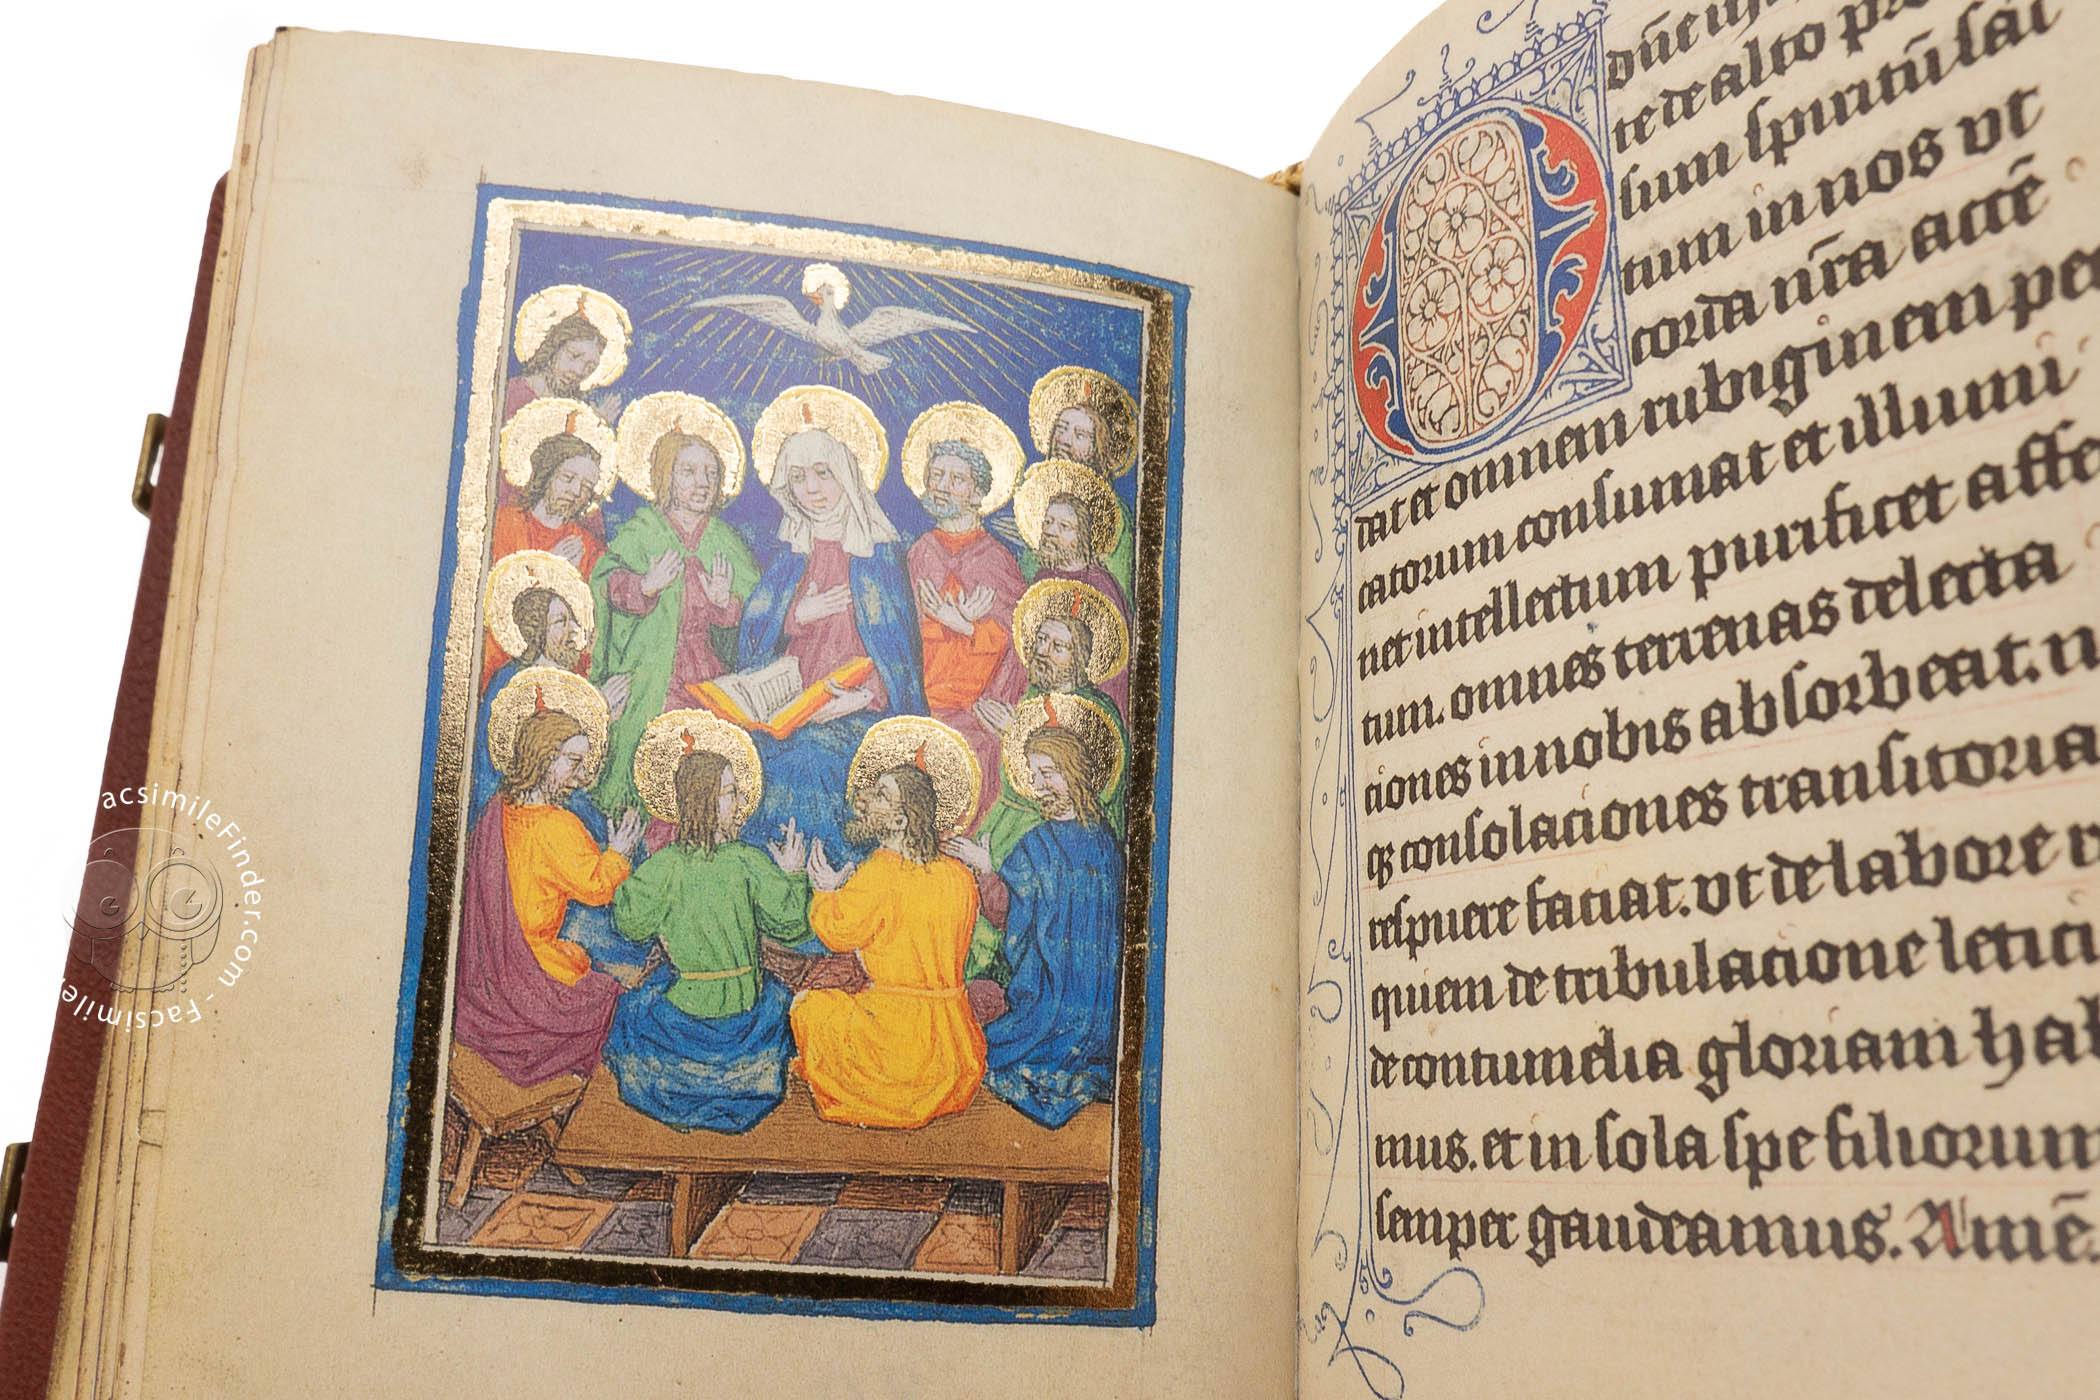 te de alto
sum spiritū sāc
tum in nos ut
corda nr̄a accē
dat et omnem rubiginem pec
catorum consumat et illumi
net intellectum purificet affe
tum. omnes terrenas delecta
ciones in nobis absorbeat.
qꝫ consolaciones transitoria
respuere faciat. ut de labore
quiem de tribulacione letici
de contumelia gloriam hab
mus. et in sola spe filiorum
semper gaudeamus. Amē.
FacsimileFinder.com - Facsimile